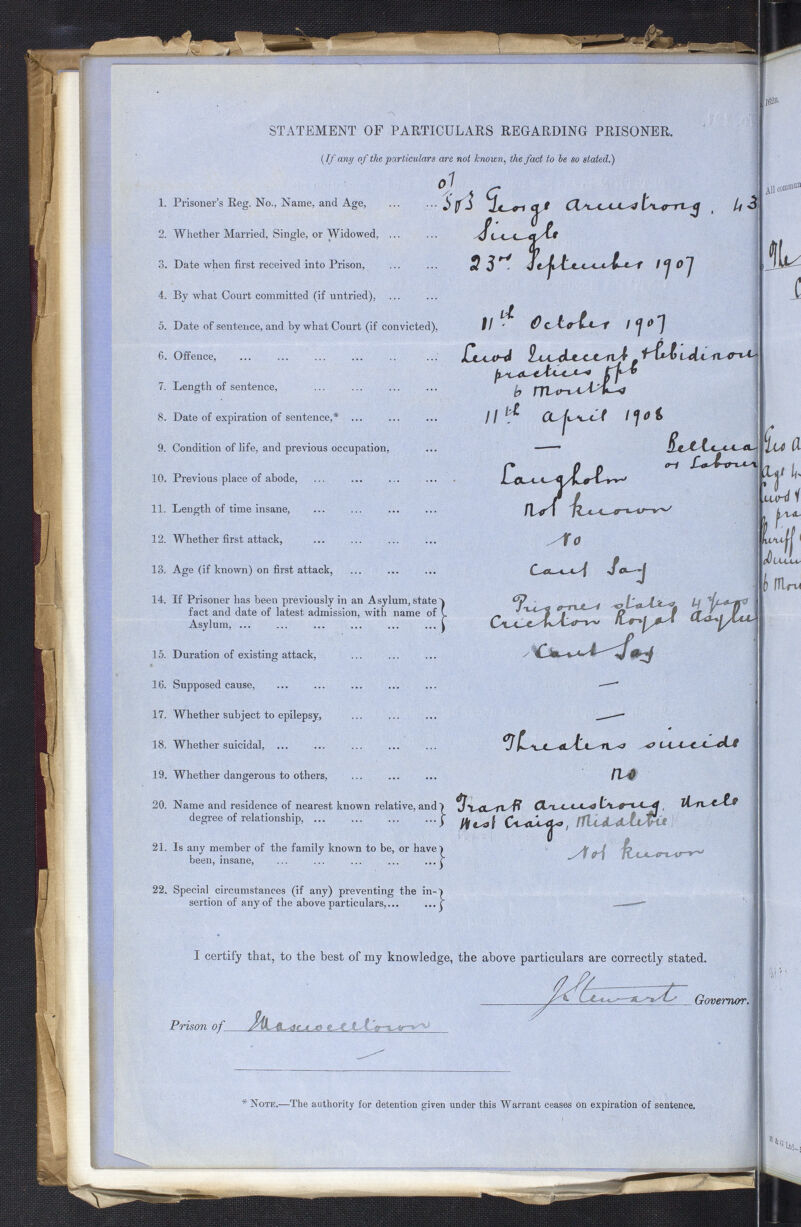 STATEMENT OF PARTICULARS REGARDING PRISONER.
(If any of the particulars are not known, the fact to be so stated.)
07
1. Prisoner's Reg. No., Name, and Age, ... ... 503 George Armstrong, 43
2. Whether Married, Single, or Widowed, ... ... Single
3. Date when first received into Prison, ... ... 23rd September 1907
4. By what Court committed (if untried), ... ...
5. Date of sentence, and by what Court (if convicted). 11th October 1907
6. Offence, ... ... ... ... ... ... Lewd Indecent & Libidinous
practices
7. Length of sentence, ... ... ... ... 6 Months
8. Date of expiration of sentence,* ... ... ... 11th April 1908
9. Condition of life, and previous occupation, ... — 
or Labour
10. Previous place of abode, ... ... ... ... Langholm
11. Length of time insane, ... ... ... ... Not known
12. Whether first attack, ... ... ... ... No
13. Age (if known) on first attack, ... ... ... Cant Say
14. If Prisoner has been previously in an Asylum, state Prisoner states 4 years
fact and date of latest admission, with name of Crichton Royal Asylu
Asylum, ... ... ... ... ... ...
15. Duration of existing attack, ... ... ... Cant Say
16. Supposed cause, ... ... ... ... ... —
17. Whether subject to epilepsy, ... ... ... —
18. Whether suicidal, ... ... ... ... ... Threatens suicide
19. Whether dangerous to others, ... ... ... No
20. Name and residence of nearest known relative, and Frank Armstrong, Uncle
degree of relationship, ... ... ... ... West Craigs, Middlebie
21. Is any member of the family known to be, or have
been, insane, ... ... ... ... ... Not known
22. Special circumstances (if any) preventing the in-
sertion of any of the above particulars,... ... —
I certify that, to the best of my knowledge, the above particulars are correctly stated.
J Stewart Governor.
Prison of Maxwelltown
* NOTE.—The authority for detention given under this Warrant ceases on expiration of sentence.
All commun
The
Geo A
Age 4
Lewd &
pra
Sheriff
Dum
6 Mon